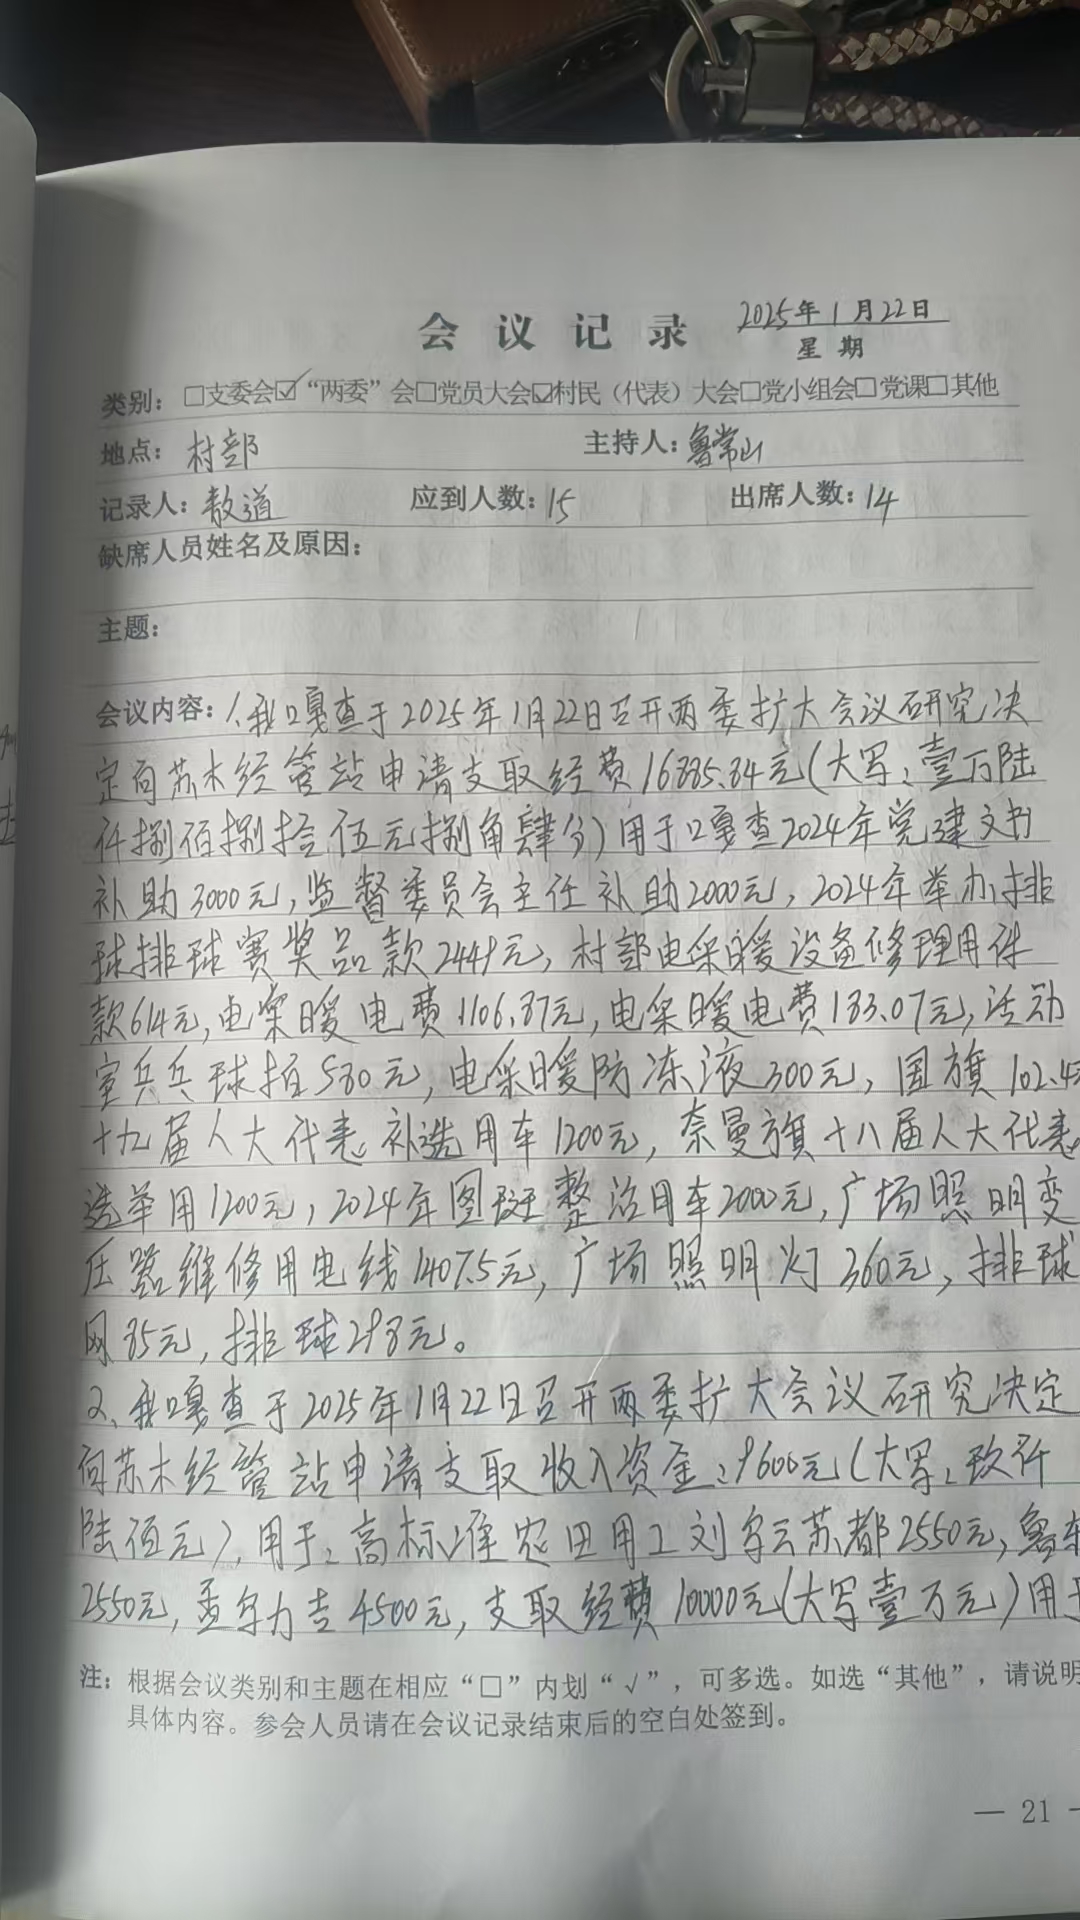 会议记录 2025年1月22日
星期
类别：□支委会☑“两委”会□党员大会☑村民（代表）大会□党小组会□党课□其他
地点：村部 主持人：鲁常山
记录人：散道 应到人数：15 出席人数：14
缺席人员姓名及原因：
主题：
会议内容：1、我嘎查于2025年1月22日召开两委扩大会议研究决
定向苏木经管站申请支取经费16885.84元（大写：壹万陆
仟捌佰捌拾伍元捌角肆分）用于嘎查2024年党建文书
补助3000元，监督委员会主任补助2000元，2024年举办排
球排球赛奖品款2449元，村部电采暖设备修理用件
款614元，电采暖电费1106.87元，电采暖电费183.07元，活动
室兵兵球拍580元，电采暖防冻液300元，国旗102.4元
十九届人大代表补选用车1200元，奈曼旗十八届人大代表
选举用1200元，2024年图斑整治用车2000元，广场照明变
压器维修用电线1407.5元，广场照明灯360元，排球
网85元，排球298元。
2、我嘎查于2025年1月22日召开两委扩大会议研究决定
向苏木经管站申请支取收入资金：9600元（大写：玖仟
陆佰元），用于：高标准农田用工刘乌云苏都2550元，鲁车
2550元，孟乌力吉4500元，支取经费10000元（大写壹万元）用于
注：根据会议类别和主题在相应“□”内划“√”，可多选。如选“其他”，请说明
具体内容。参会人员请在会议记录结束后的空白处签到。
— 21 —